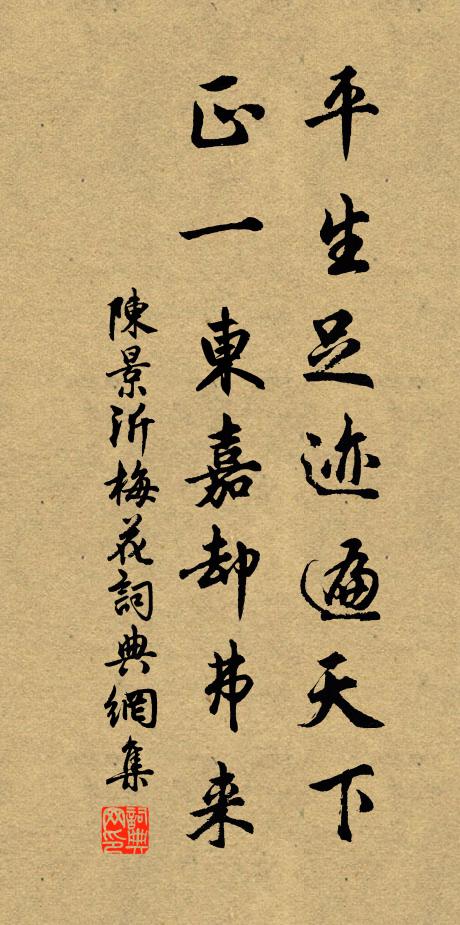 平生足迹遍天下
正一東嘉却弗来
陳景沂梅花詞典網集
詞典網印